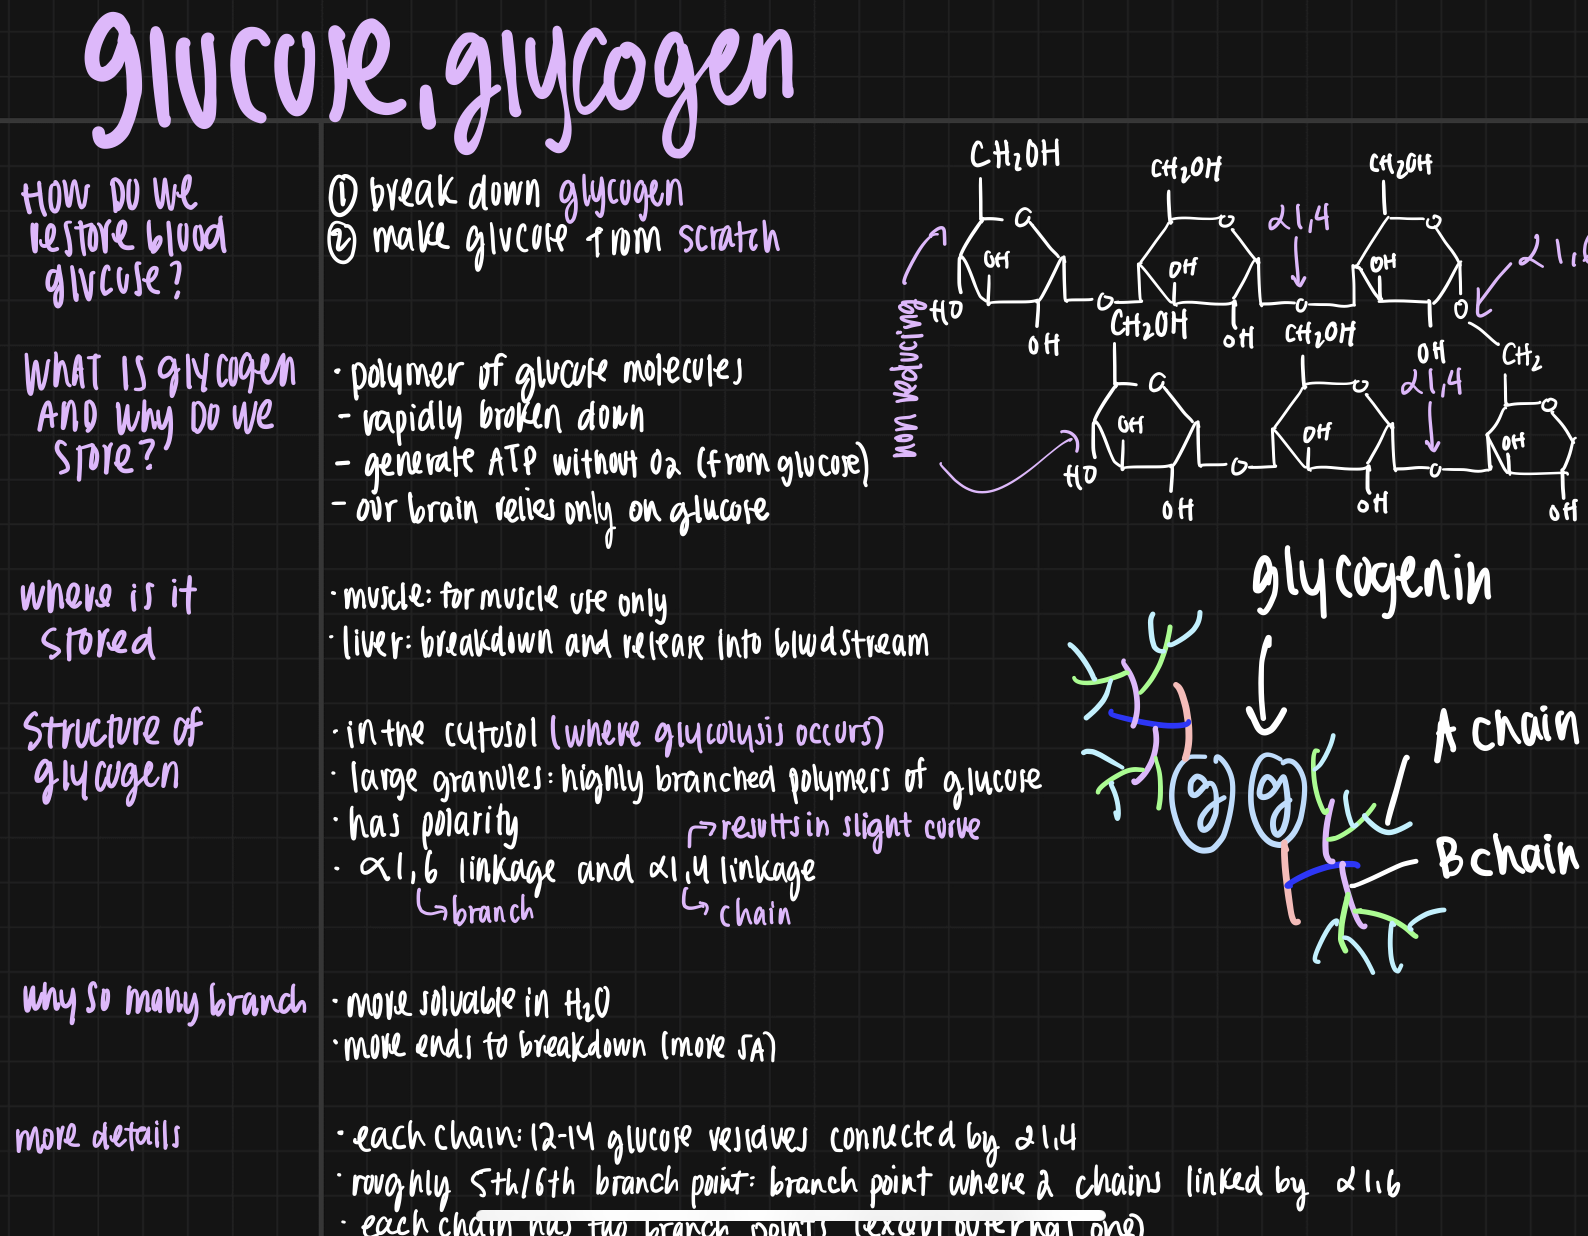 glucose, glycogen
HOW DO WE
restore blood
glucose?
① break down glycogen
② make glucose from scratch
WHAT IS glycogen
AND why DO WE
store?
· polymer of glucose molecules
- rapidly broken down
- generate ATP without O2 (from glucose)
- our brain relies only on glucose
where is it
stored
· muscle: for muscle use only
· liver: breakdown and release into bloodstream
Structure of
glycogen
· in the cytosol (where glycolysis occurs)
· large granules: highly branched polymers of glucose
· has polarity
→ results in slight curve
· α1,6 linkage and α1,4 linkage
↳ branch
↳ chain
why so many branch
· more soluable in H2O
· more ends to breakdown (more SA)
more details
· each chain: 12-14 glucose residues connected by α1,4
· roughly 5th/6th branch point: branch point where 2 chains linked by α1,6
· each chain has two branch points (except outernal one)
CH2OH
CH2OH
CH2OH
O
O
O
α1,4
α1,6
OH
OH
OH
HO
O
O
O
OH
OH
OH
non reducing
CH2OH
CH2OH
CH2
α1,4
O
O
O
OH
OH
OH
HO
O
O
OH
OH
OH
glycogenin
g
g
A chain
B chain